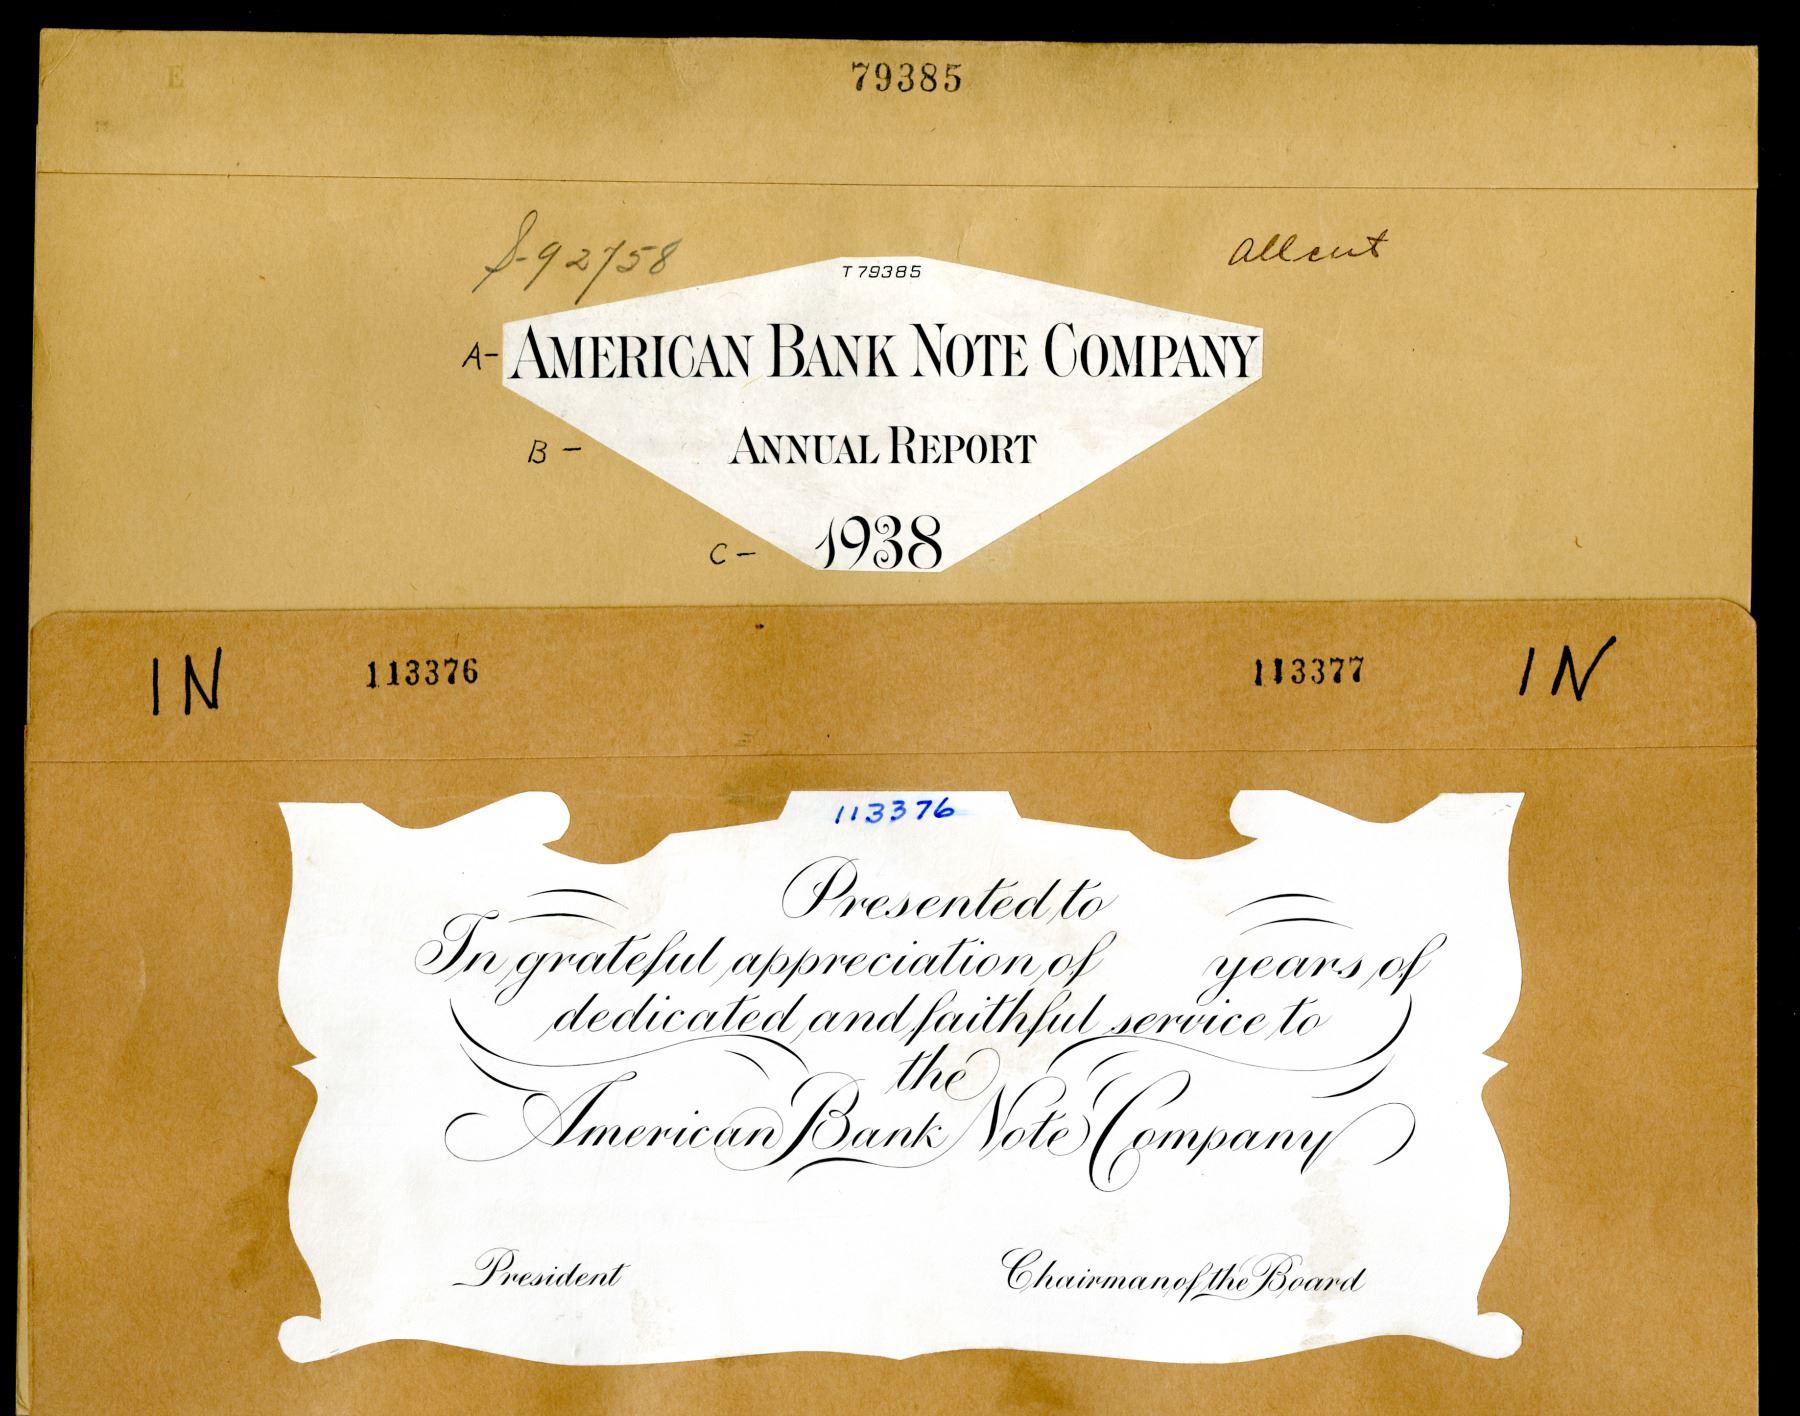 E
79385
S-92758
All cut
T79385
A- AMERICAN BANK NOTE COMPANY
B - ANNUAL REPORT
C - 1938
IN 113376 113377 IN
113376
Presented to
In grateful appreciation of years of
dedicated and faithful service to
the
American Bank Note Company
President Chairman of the Board